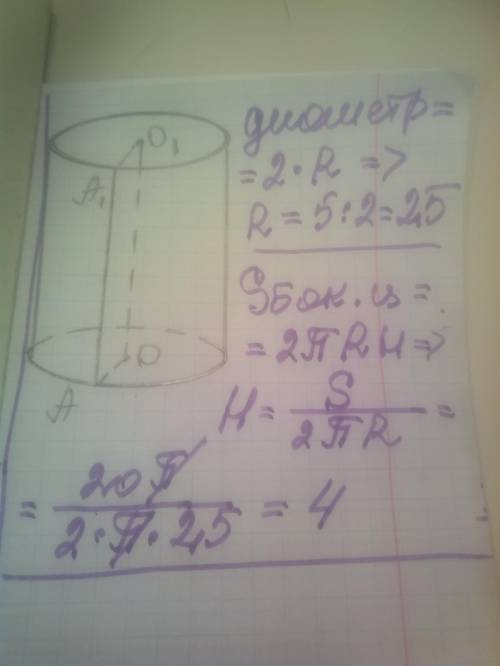 O₁
A₁
O
A
диометр=
=2·R =>
R = 5:2=2,5
Sбок.ц =
= 2πRH =>
H = S / 2πR =
= 20π / 2·π·2,5 = 4